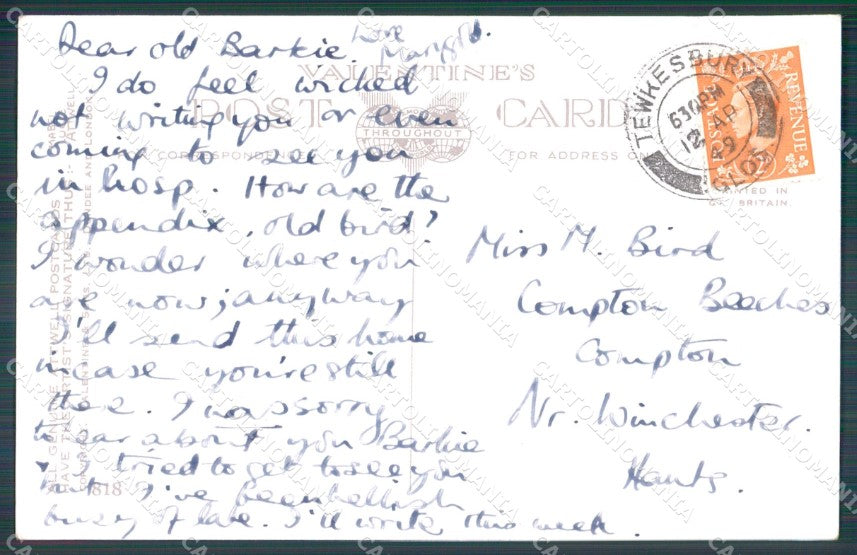 Dear old Barkie. Love
I do feel wicked
not writing you or even
coming to see you
in hosp. How are the
appendix, old bird?
I wonder where you
are now; anyway
I'll send this home
in case you're still
there. I was sorry
to hear about you Barkie
I tried to get to see you
but I've been hellish
busy of late. I'll write this week.
VALENTINE'S
POST CARD
THROUGHOUT
CORRESPONDENCE
FOR ADDRESS ON
TEWKESBURY
630PM
12 AP
49
GLOS
POSTAGE
REVENUE
PRINTED IN
GT. BRITAIN
Miss M. Bird
Compton Beeches
Compton
Nr. Winchester.
Hants.
ALL GENUINE "ATTWELL" POSTCARDS
HAVE THE ARTIST'S SIGNATURE THUS:-
818
CARTOLINOMANIA